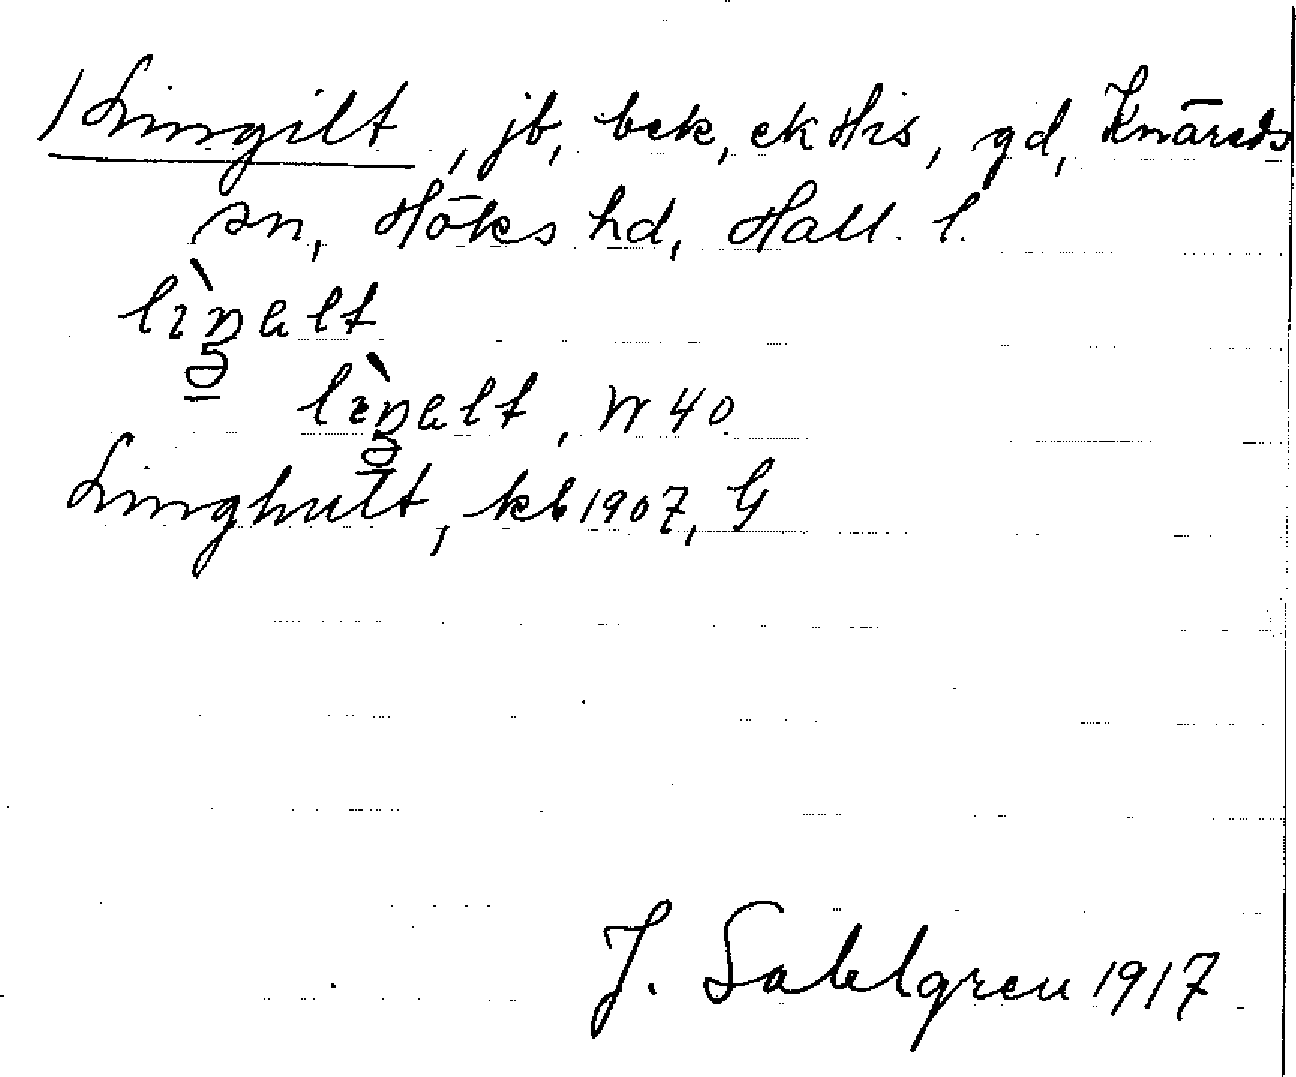 / Lingilt, jb, bek, ekHis, gd, Knäreds
sn, Höks hd, Hall. l.
lìŋalt
lìŋalt, W 40
Linghult, kb 1907, G
J. Sahlgren 1917